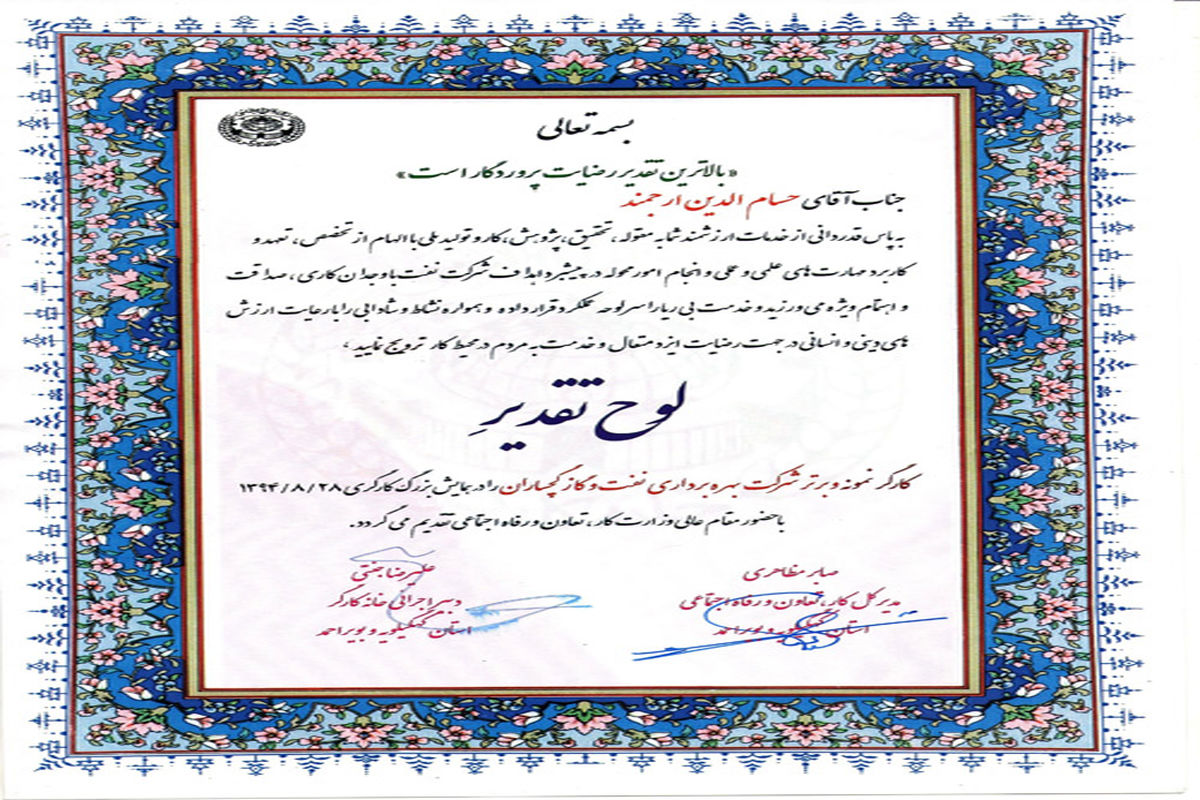 بسمه تعالی
«بالاترین تقدیر رضایت پروردگار است»
جناب آقای حسام الدین ارجمند
به پاس قدردانی از خدمات ارزشمند شما به مقوله، تحقیق، پژوهش، کار و تولید ملی با الهام از تخصص، تعهد و
کاربرد مهارت های علمی و عملی و انجام امور محوله در پیشبرد اهداف شرکت نفت با وجدان کاری، صداقت
و اهتمام ویژه می ورزید و خدمت بی ریا را سرلوحه عملکرد قرار داده و همواره نشاط و شادابی را با رعایت ارزش
های دینی و انسانی در جهت رضایت ایزد متعال و خدمت به مردم در محیط کار ترویج نمایید،
لوح تقدیر
کارگر نمونه و برتر شرکت بهره برداری نفت و گاز گچساران را در همایش بزرگ کارگری ۱۳۹۴/۸/۲۸
با حضور مقام عالی وزارت کار، تعاون و رفاه اجتماعی تقدیم می گردد.
صابر مظاهری
مدیر کل کار، تعاون و رفاه اجتماعی
استان کهگیلویه و بویراحمد
علیرضا جنتی
دبیر اجرائی خانه کارگر
استان کهگیلویه و بویراحمد